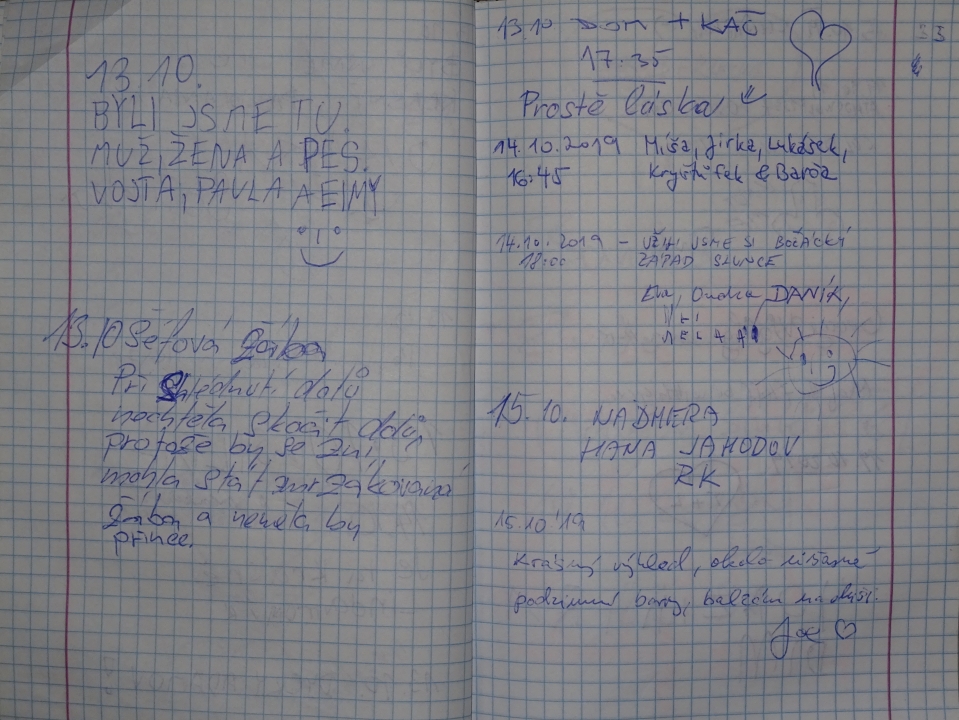 13.10.
BYLI JSME TU.
MUŽ, ŽENA A PES.
VOJTA, PAVLA A EIMY
13.10 Šéfová Žába
Při shlédnutí dolů
nechtěla skočit dolů,
protože by se z ní
mohla stát zmrzákovaná
žába a neměla by
prince.
13.10 DOM + KAČ
17:35
Prostě láska
14.10.2019 Míša, Jirka, Lukášek,
16:45 Kryštůfek & Barča
14.10.2019 – UŽILI JSME SI
18:00 ZÁPAD SLUNCE
Eva, Ondra, DANÍK,
15.10. NÁDHERA
HANA JAHODOV
RK
15.10'19
Krásný výhled, okolo
podzimní barvy, balzám na duši.
Joe